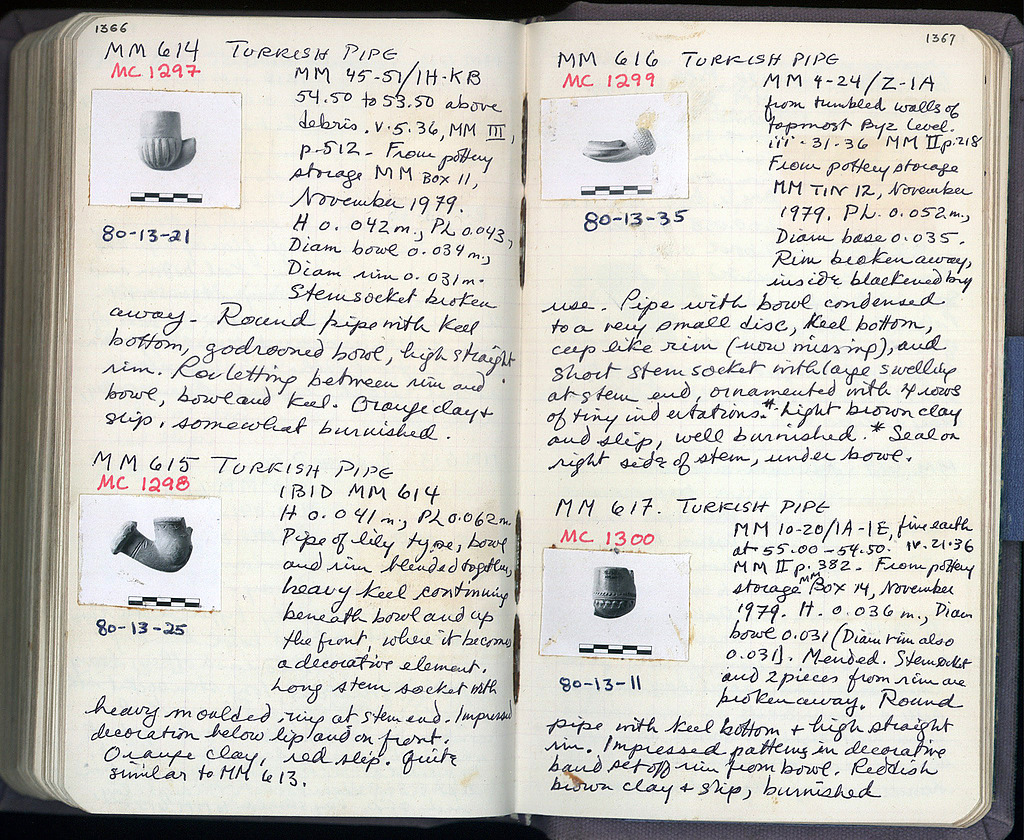 1366
MM 614 TURKISH PIPE
MC 1297
MM 45-51/1H-KB
54.50 to 53.50 above
debris. v.5.36, MM III,
p.512. From pottery
storage MM Box 11,
November 1979.
H 0.042 m., PL 0.043,
Diam bowl 0.034 m.,
Diam rim 0.031 m.
Stem socket broken
80-13-21
away. Round pipe with keel
bottom, godrooned bowl, high straight
rim. Rouletting between rim and
bowl, bowl and keel. Orange clay +
slip, somewhat burnished.
MM 615 TURKISH PIPE
MC 1298
IBID MM 614
H 0.041 m., PL 0.062 m.
Pipe of lily type, bowl
and rim blended together,
heavy keel continuing
beneath bowl and up
the front, where it becomes
a decorative element.
Long stem socket with
80-13-25
heavy moulded ring at stem end. Impressed
decoration below lip and on front.
Orange clay, red slip. Quite
similar to MM 613.
1367
MM 616 TURKISH PIPE
MC 1299
MM 4-24/Z-1A
from tumbled walls of
topmost Byz level.
iii-31-36 MM II p.218
From pottery storage
MM TIN 12, November
1979. PL. 0.052 m.,
Diam base 0.035.
Rim broken away,
inside blackened by
80-13-35
use. Pipe with bowl condensed
to a very small disc, keel bottom,
cup like rim (now missing), and
short stem socket with large swelling
at stem end, ornamented with 4 rows
of tiny indentations.* Light brown clay
and slip, well burnished. * Seal on
right side of stem, under bowl.
MM 617. TURKISH PIPE
MC 1300
MM 10-20/1A-1E, fine earth
at 55.00-54.50. iv.21.36
MM II p. 382. From pottery
storage MM Box 14, November
1979. H. 0.036 m., Diam
bowl 0.031 (Diam rim also
0.031). Mended. Stem socket
and 2 pieces from rim are
broken away. Round
80-13-11
pipe with keel bottom + high straight
rim. Impressed patterns in decorative
band set off rim from bowl. Reddish
brown clay + slip, burnished